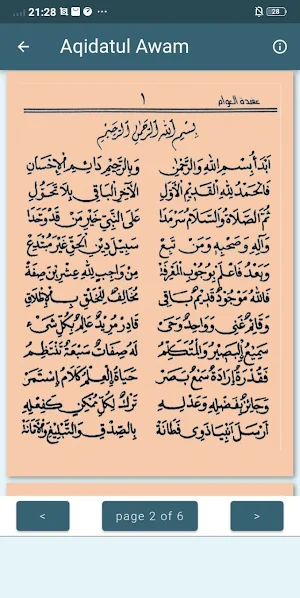 21:28
28
Aqidatul Awam
عقيدة العوام
١
بِسْمِ اللهِ الرَّحْمٰنِ الرَّحِيْمِ
أَبْدَأُ بِاسْمِ اللهِ وَالرَّحْمٰنِ وَبِالرَّحِيْمِ دَائِمِ الْإِحْسَانِ
فَالْحَمْدُ لِلّٰهِ الْقَدِيْمِ الْأَوَّلِ الْآخِرِ الْبَاقِيْ بِلَا تَحَوُّلِ
ثُمَّ الصَّلَاةُ وَالسَّلَامُ سَرْمَدَا عَلَى النَّبِيِّ خَيْرِ مَنْ قَدْ وَحَّدَا
وَآلِهِ وَصَحْبِهِ وَمَنْ تَبِعْ سَبِيْلَ دِيْنِ الْحَقِّ غَيْرَ مُبْتَدِعْ
وَبَعْدُ فَاعْلَمْ بِوُجُوْبِ الْمَعْرِفَهْ مِنْ وَاجِبٍ لِلّٰهِ عِشْرِيْنَ صِفَهْ
فَاللهُ مَوْجُوْدٌ قَدِيْمٌ بَاقِى مُخَالِفٌ لِلْخَلْقِ بِالْإِطْلَاقِ
وَقَائِمٌ غَنِيْ وَوَاحِدٌ وَحَيّ قَادِرْ مُرِيْدٌ عَالِمٌ بِكُلِّ شَيْءْ
سَمِيْعٌ الْبَصِيْرُ وَالْمُتَكَلِّمُ لَهُ صِفَاتٌ سَبْعَةٌ تَنْتَظِمُ
فَقُدْرَةٌ إِرَادَةٌ سَمْعٌ بَصَرْ حَيَاةٌ الْعِلْمُ كَلَامٌ اسْتَمَرْ
وَجَائِزٌ بِفَضْلِهِ وَعَدْلِهِ تَرْكٌ لِكُلِّ مُمْكِنٍ كَفِعْلِهِ
أَرْسَلَ أَنْبِيَا ذَوِي فَطَانَهْ بِالصِّدْقِ وَالتَّبْلِيْغِ وَالْأَمَانَهْ
<
page 2 of 6
>